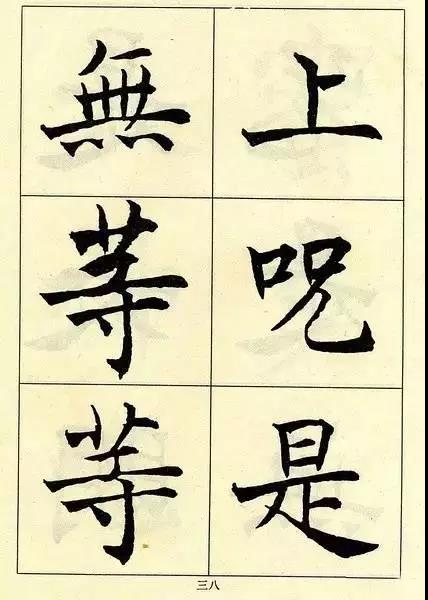 上咒是
無等等
三八